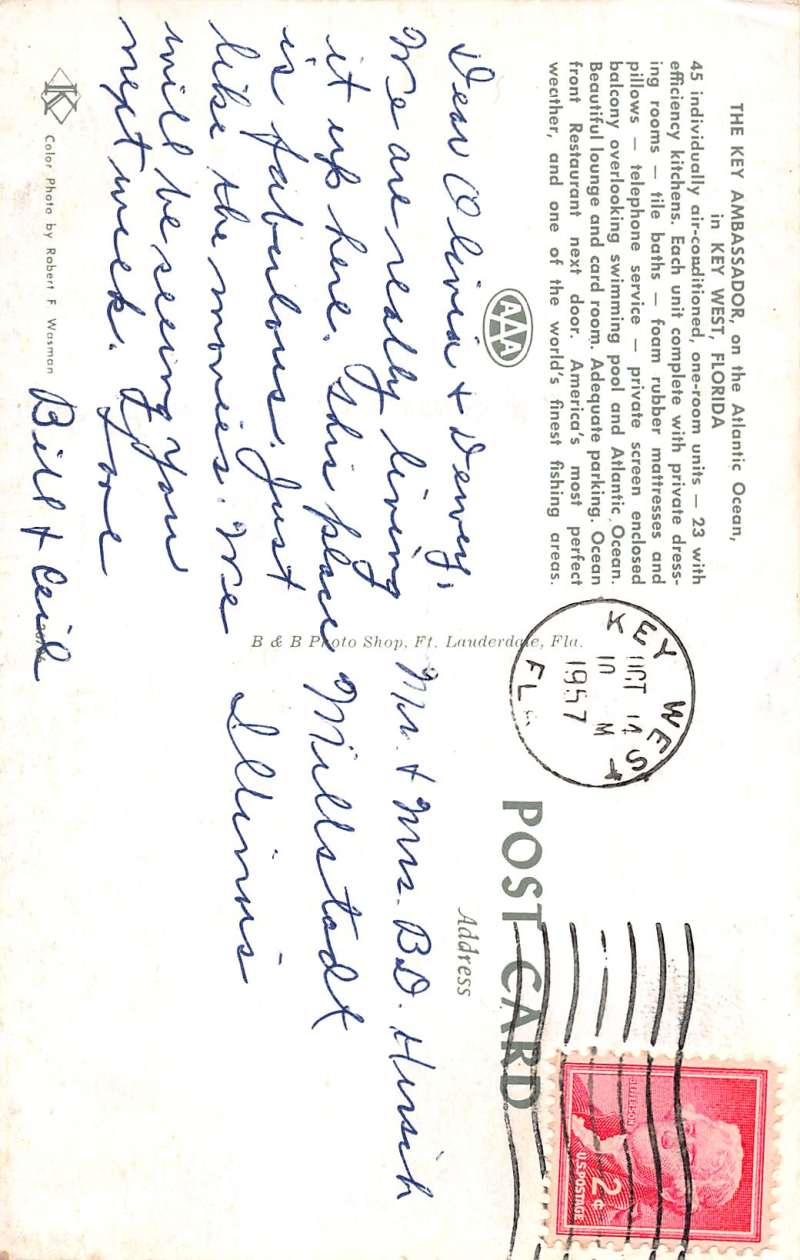 THE KEY AMBASSADOR, on the Atlantic Ocean,
in KEY WEST, FLORIDA
45 individually air-conditioned, one-room units — 23 with
efficiency kitchens. Each unit complete with private dress-
ing rooms — tile baths — foam rubber mattresses and
pillows — telephone service — private screen enclosed
balcony overlooking swimming pool and Atlantic Ocean.
Beautiful lounge and card room. Adequate parking. Ocean
front Restaurant next door. America's most perfect
weather, and one of the world's finest fishing areas.
AAA
Dear Olivia & Dewey,
We are really living
it up here. This place
is fabulous. Just
like the movies. We
will be seeing you
next week. Love
Bill & Ceil
K
Color Photo by Robert F Wasman
B & B Photo Shop, Ft. Lauderdale, Fla.
KEY WEST
OCT 14
10 M
1957
FLA
POST CARD
Address
Mr. & Mrs. B.D. Hirsch
Millstadt
Illinois
JEFFERSON
2¢
U.S. POSTAGE